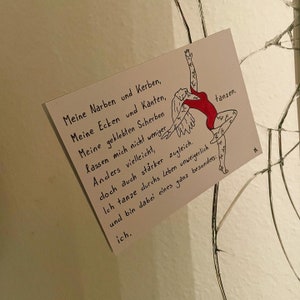 Meine Narben und Kerben,
Meine Ecken und Kanten,
Meine geklebten Scherben
lassen mich nicht weniger tanzen.
Anders vielleicht,
doch auch stärker zugleich.
Ich tanze durchs Leben unweigerlich
und bin dabei eines ganz besonders:
ich.